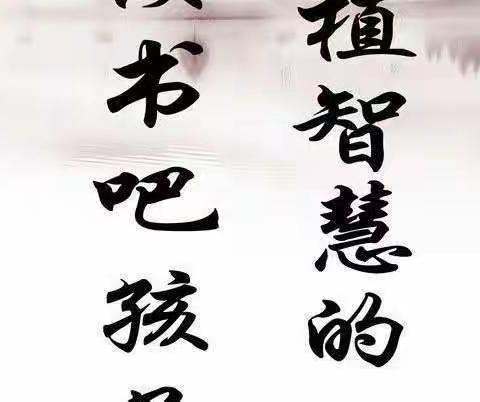 植智慧的
书吧孩